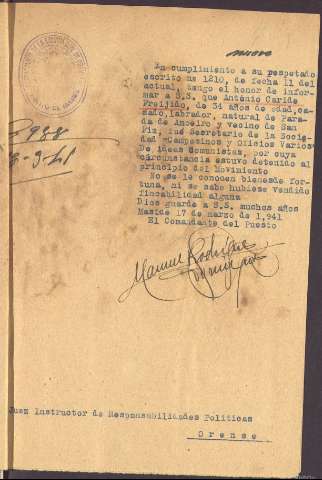 nueve
En cumplimiento a su respetado
escrito nº 1210, de fecha 11 del
actual, tengo el honor de infor-
mar a S.S. que Antonio Caride
Freijido, de 34 años de edad,ca-
sado,labrador, natural de Para-
da de Amoeiro y vecino de San
Fiz, fue Secretario de la Socie-
dad "Campesinos y Oficios Varios"
De ideas Comunistas, por cuya
circunstancia estuvo detenido al
principio del Movimiento
No se le conocen bienesde for-
tuna, ni se sabe hubiese vendido
fincabilidad alguna
Dios guarde a S.S. muchos años
Maside 17 de marzo de 1,941
El Comandante del Puesto
Manuel Rodrigue
Juez Instructor de Responsabilidades Politicas
Orense